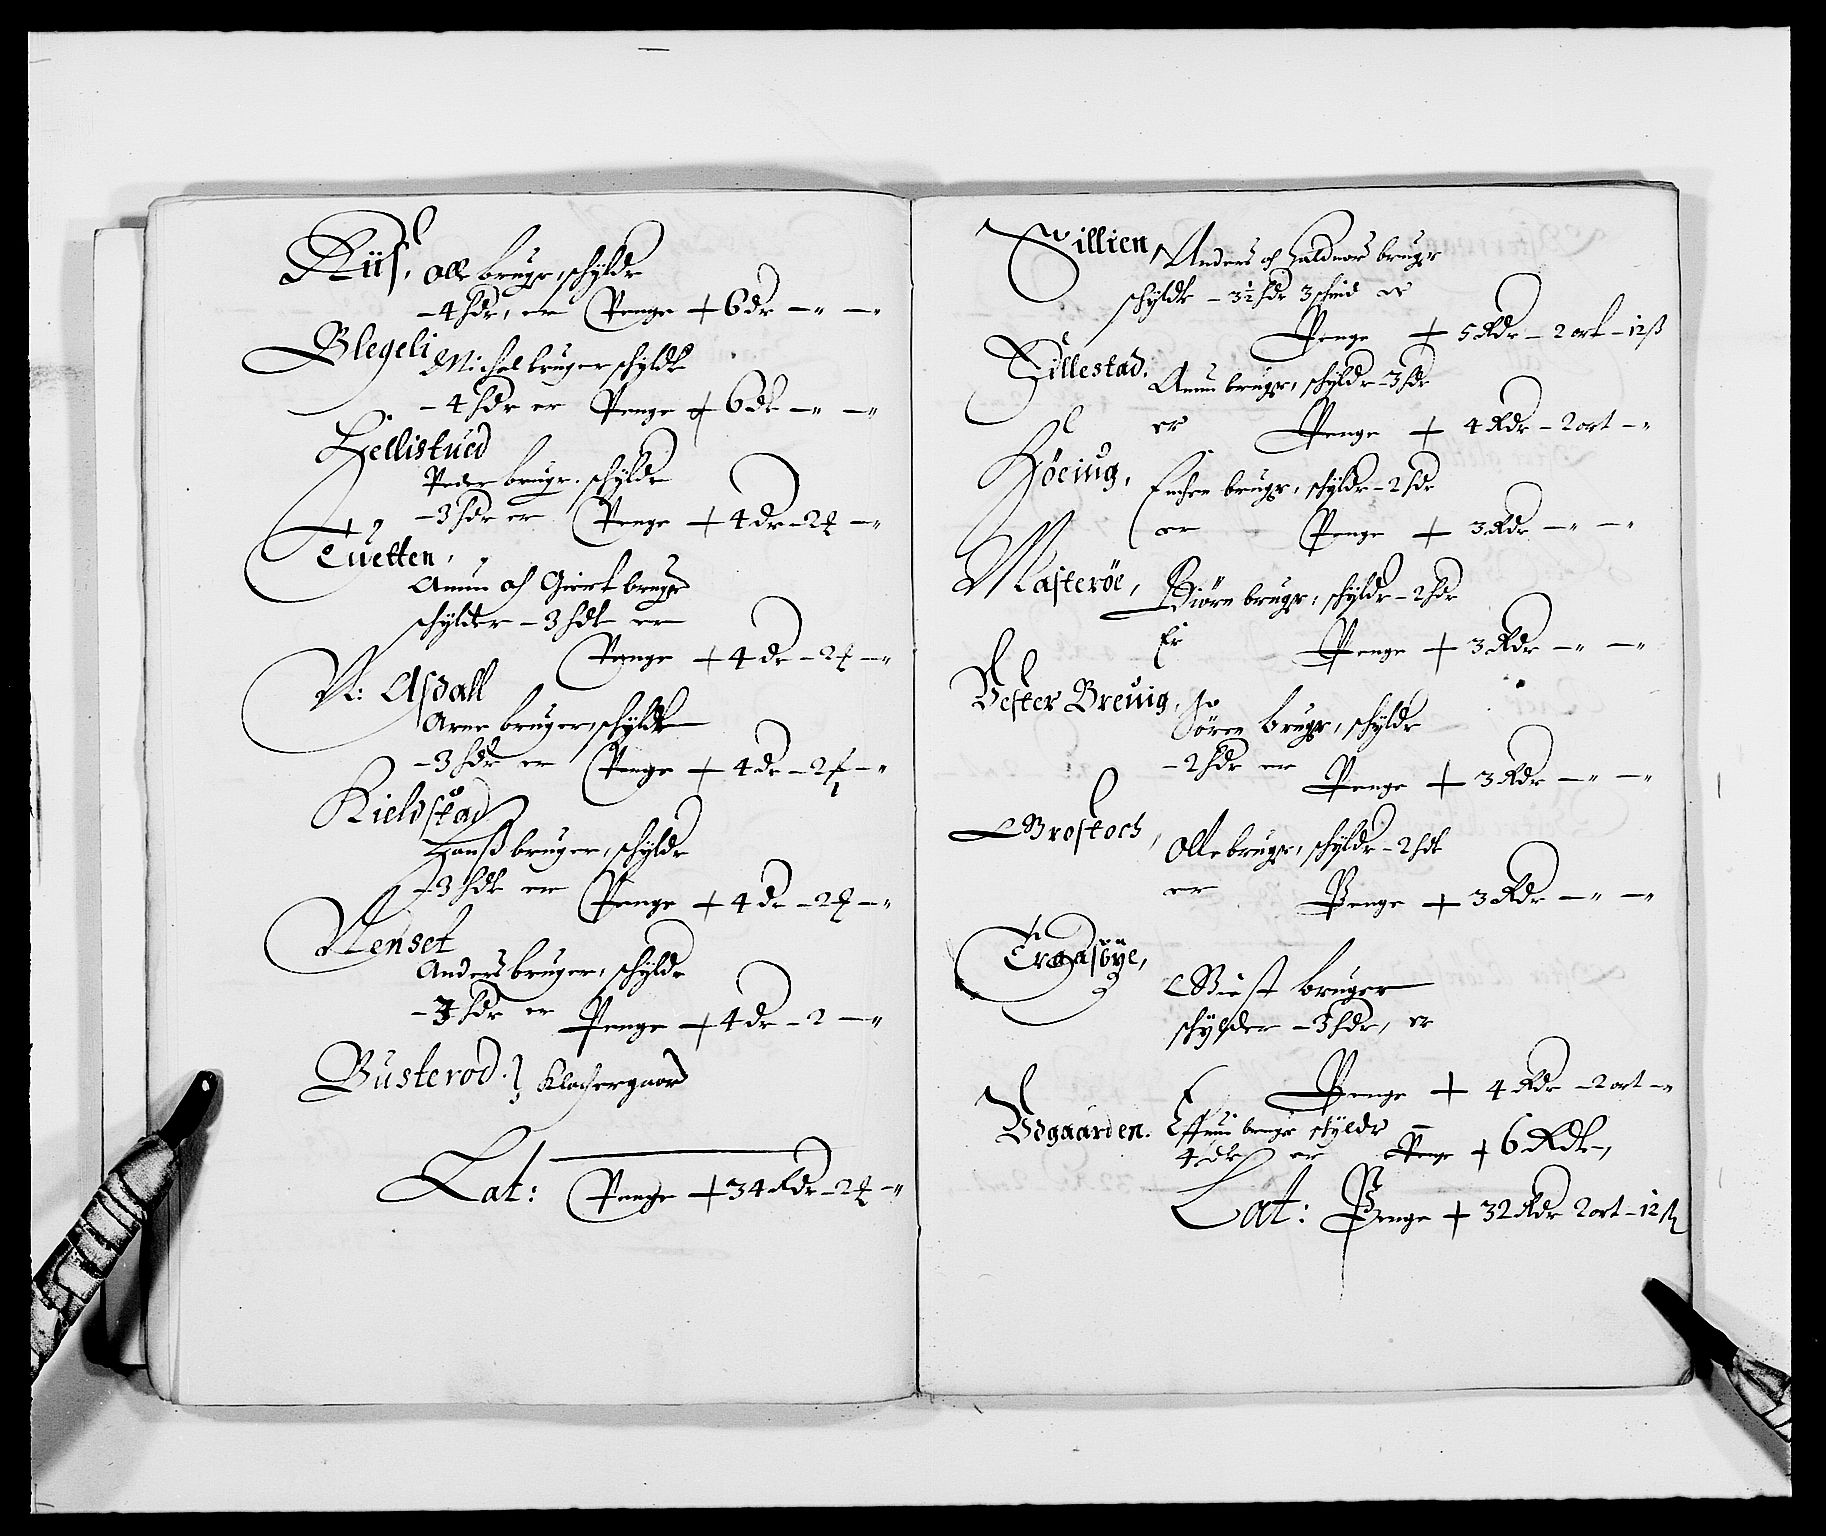 Riis, Olle bruger, schylder
– 4 hdr, er Penge + 6 dr – " – "
Blegeli Michel bruger schylder
– 4 hdr er Penge + 6 dr – " – "
Hellistued
Peder bruger. schylder
– 3 hdr er Penge + 4 dr – 2 – "
Tuetten,
Amun och Giert bruger
schylder – 3 hdr er
Penge + 4 dr – 2 – "
N: Asdall
Arne bruger, schylder
– 3 hdr er Penge + 4 dr – 2 – "
Kieldstad
Hanß bruger, schylder
– 3 hdr er Penge + 4 dr – 2 – "
Nenset
Anders bruger, schylder
– 3 hdr er Penge + 4 dr – 2 – "
Busterod. Klochergaard
Lat: Penge + 34 Rdr – 2 – "
Sillien, Anders och Haldvor bruger
schylder – 3½ hdr 3 schind er
Penge + 5 Rdr – 2 ort – 12 ß
Sillestad. Amun bruger, schylder – 3 hdr
er Penge + 4 Rdr – 2 ort – "
Höeiug, bruger, schylder – 2 hdr
er Penge + 3 Rdr – " – "
Masteröe, Biörn bruger, schylder – 2 hdr
Er Penge + 3 Rdr – " – "
Vester Breuig,
Sören bruger, schylder
– 2 hdr er Penge + 3 Rdr – " – "
Grostoch, Olle bruger, schylder – 2 hdr
er Penge + 3 Rdr – " – "
Traasöye,
bruger
schylder – 3 hdr, er
Penge + 4 Rdr – 2 ort – "
Vdgaarden. bruger schylder
4 hdr er Penge + 6 Rdr –,
Lat: Penge + 32 Rdr 2 ort – 12 ß